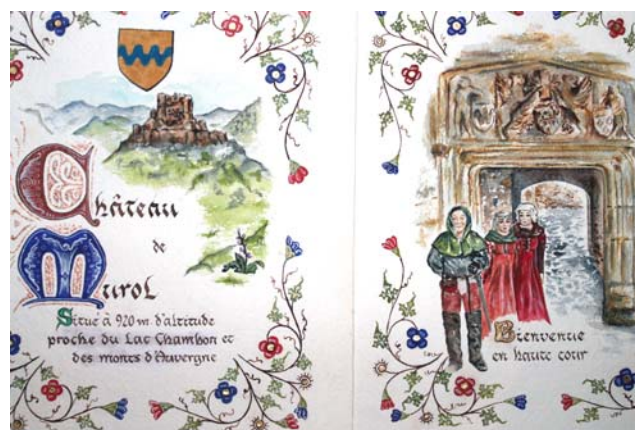 Château
de
Murol
Situé à 920 m. d'altitude
proche du Lac Chambon et
des monts d'Auvergne
Bienvenue
en haute cour